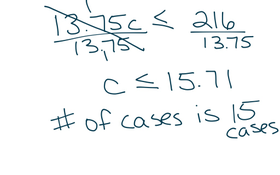 13.75c ≤ 216
13.75 13.75
c ≤ 15.71
# of cases is 15
cases